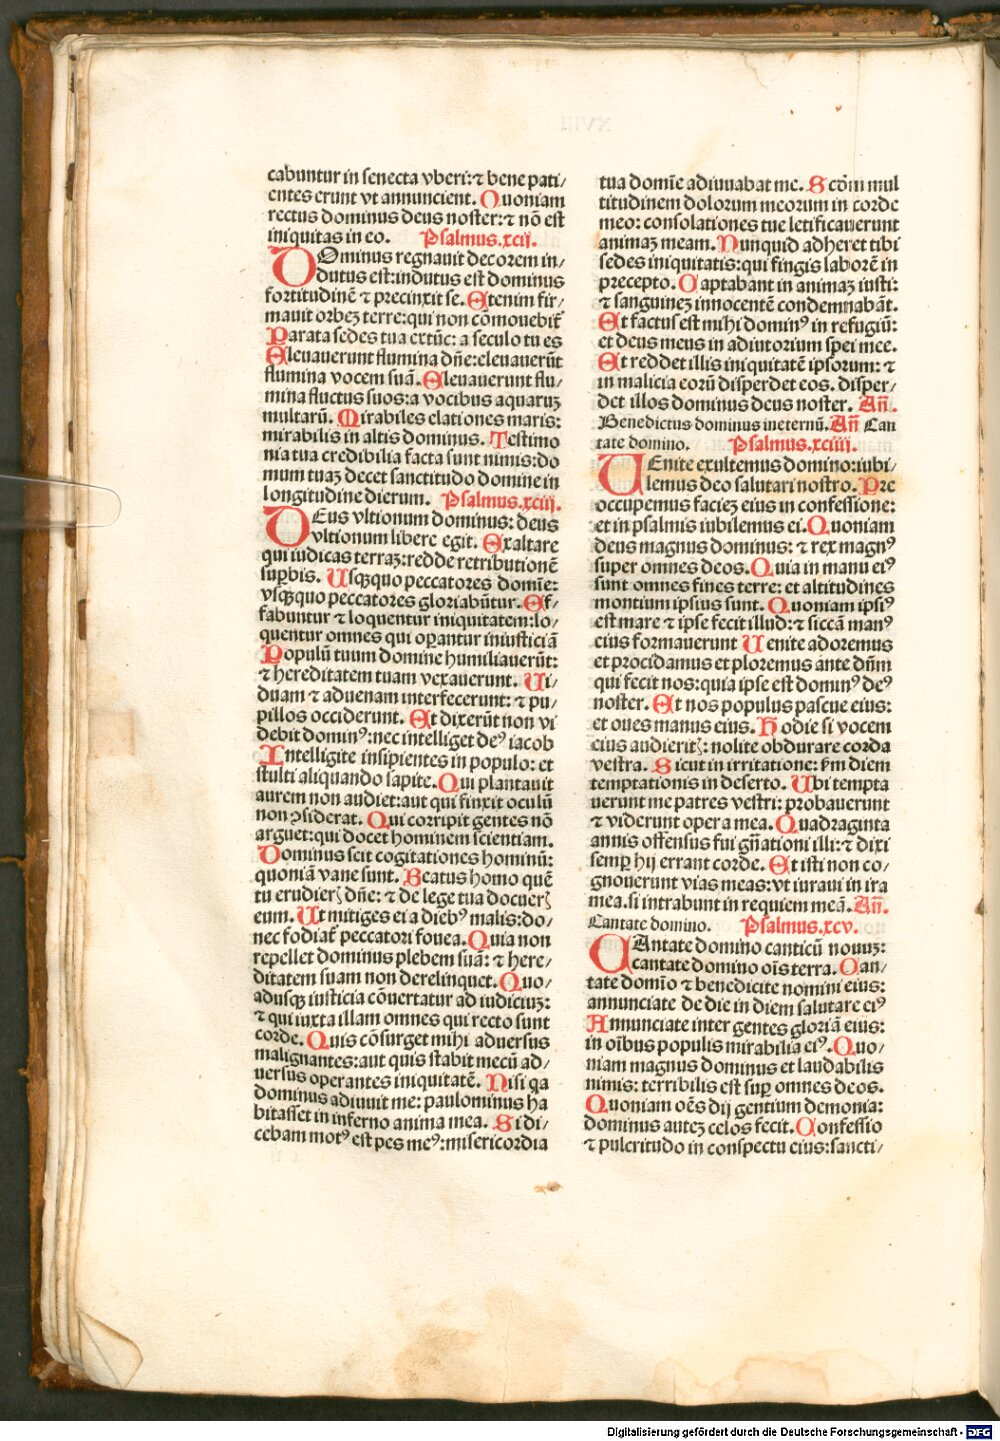 cabuntur in senecta vberi: ⁊ bene pati/
entes erunt vt annuncient. Quoniam
rectus dominus deus noster: ⁊ nō est
iniquitas in eo. Psalmus.xcij.
DOminus regnauit decorem in/
dutus est: indutus est dominus
fortitudinē ⁊ precinxit se. Etenim fir/
mauit orbeʒ terre: qui non cōmouebit᷑
Parata sedes tua extūc: a seculo tu es
Eleuauerunt flumina dñe: eleuauerūt
flumina vocem suā. Eleuauerunt flu/
mina fluctus suos: a vocibus aquaruʒ
multarū. Mirabiles elationes maris:
mirabilis in altis dominus. Testimo
nia tua credibilia facta sunt nimis: do
mum tuaʒ decet sanctitudo domine in
longitudine dierum. Psalmus.xciij.
DEus vltionum dominus: deus
vltionum libere egit. Exaltare
qui iudicas terraʒ: redde retributionē
suꝑbis. Usqꝫquo peccatores domīe:
vsqꝫquo peccatores gloriabūtur. Ef/
fabuntur ⁊ loquentur iniquitatem: lo/
quentur omnes qui oꝑantur iniusticiā
Populū tuum domine humiliauerūt:
⁊ hereditatem tuam vexauerunt. Ui/
duam ⁊ aduenam interfecerunt: ⁊ pu/
pillos occiderunt. Et dixerūt non vi
debit dominꝰ: nec intelliget deꝰ iacob
Intelligite insipientes in populo: et
stulti aliquando sapite. Qui plantauit
aurem non audiet: aut qui finxit oculū
non ꝯsiderat. Qui corripit gentes nō
arguet: qui docet hominem scientiam.
Dominus scit cogitationes hominū:
quoniā vane sunt. Beatus homo quē
tu erudierꝭ dñe: ⁊ de lege tua docuerꝭ
eum. Ut mitiges ei a diebꝰ malis: do/
nec fodiat᷑ peccatori fouea. Quia non
repellet dominus plebem suā: ⁊ here/
ditatem suam non derelinquet. Quo/
adusqꝫ iusticia cōuertatur ad iudiciuʒ:
⁊ qui iuxta illam omnes qui recto sunt
corde. Quis cōsurget mihi aduersus
malignantes: aut quis stabit mecū ad/
uersus operantes iniquitatē. Nisi qa
dominus adiuuit me: paulominus ha
bitasset in inferno anima mea. Si di/
cebam motꝰ est pes meꝰ: misericordia
tua domīe adiuuabat me. Scðm mul
titudinem dolorum meorum in corde
meo: consolationes tue letificauerunt
animaʒ meam. Nunquid adheret tibi
sedes iniquitatis: qui fingis laborē in
precepto. Captabant in animaʒ iusti:
⁊ sanguineʒ innocentē condemnabāt.
Et factus est mihi dominꝰ in refugiū:
et deus meus in adiutorium spei mee.
Et reddet illis iniquitatē ipsorum: ⁊
in malicia eorū disperdet eos. disper/
det illos dominus deus noster. Añ.
Benedictus dominus ineternū. Añ Can
tate domino. Psalmus.xciiij.
UEnite exultemus domino: iubi/
lemus deo salutari nostro. Pre
occupemus facieʒ eius in confessione:
et in psalmis iubilemus ei. Quoniam
deus magnus dominus: ⁊ rex magnꝰ
super omnes deos. Quia in manu eiꝰ
sunt omnes fines terre: et altitudines
montium ipsius sunt. Quoniam ipsiꝰ
est mare ⁊ ipse fecit illud: ⁊ siccā manꝰ
eius formauerunt Uenite adoremus
et procidamus et ploremus ante dn̄m
qui fecit nos: quia ipse est dominꝰ deꝰ
noster. Et nos populus pascue eius:
et oues manus eius. Hodie si vocem
eius audieritꝭ: nolite obdurare corda
vestra. Sicut in irritatione: ẜm diem
temptationis in deserto. Ubi tempta
uerunt me patres vestri: probauerunt
⁊ viderunt opera mea. Quadraginta
annis offensus fui gn̄ationi illi: ⁊ dixi
semꝑ hij errant corde. Et isti non co/
gnouerunt vias meas: vt iuraui in ira
mea. si intrabunt in requiem meā. Añ.
Cantate domino. Psalmus.xcv.
CAntate domino canticū nouuʒ:
cantate domino oīs terra. Can/
tate domīo ⁊ benedicite nomini eius:
annunciate de die in diem salutare eiꝰ
Annunciate inter gentes gloriā eius:
in oībus populis mirabilia eiꝰ. Quo/
niam magnus dominus et laudabilis
nimis: terribilis est suꝑ omnes deos.
Quoniam oēs dij gentium demonia:
dominus auteʒ celos fecit. Confessio
⁊ pulcritudo in conspectu eius: sancti/
Digitalisierung gefördert durch die Deutsche Forschungsgemeinschaft - DFG